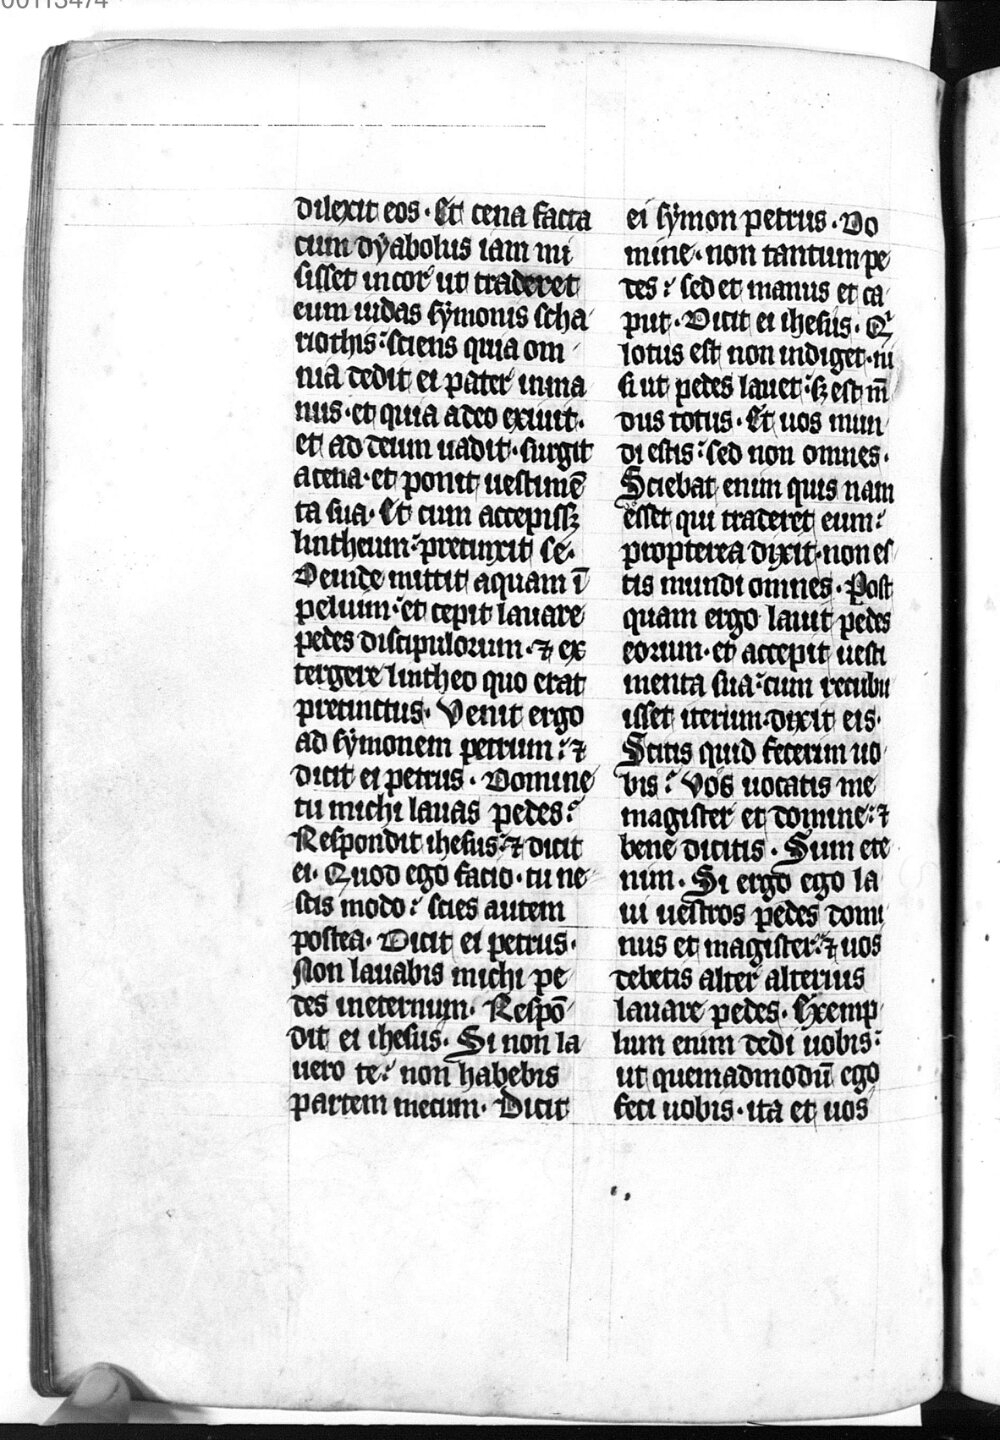 00113474
dilexit eos · Et cena facta
cum dyabolus iam mi
sisset incor ut traderet
eum iudas symonis scha
riothis : sciens quia om
nia dedit ei pater inma
nus · et quia adeo exiuit ·
et ad deum uadit · surgit
acena · et ponit uestimē
ta sua · Et cum accepissꝫ
lintheum : precinxit se ·
Deinde mittit aquam ī
peluim : et cepit lauare
pedes discipulorum · ⁊ ex
tergere lintheo quo erat
precinctus · Venit ergo
ad symonem petrum : ⁊
dicit ei petrus · Domine
tu michi lauas pedes :
Respondit ihesus : ⁊ dicit
ei · Quod ego facio · tu ne
scis modo : scies autem
postea · Dicit ei petrus ·
Non lauabis michi pe
des ineternum · Respō
dit ei ihesus · Si non la
uero te : non habebis
partem mecum · Dicit
ei symon petrus · Do
mine · non tantum pe
des : sed et manus et ca
put · Dicit ei ihesus · Qͥ
lotus est non indiget · ni
si ut pedes lauet : sꝫ est mū
dus totus · Et uos mun
di estis : sed non omnes ·
Sciebat enim quis nam
esset qui traderet eum :
propterea dixit · non es
tis mundi omnes · Post
quam ergo lauit pedes
eorum · et accepit uesti
menta sua : cum recubu
isset iterum · dixit eis ·
Scitis quid fecerim uo
bis : Vos uocatis me
magister et domine : ⁊
bene dicitis · Sum ete
nim · Si ergo ego la
ui uestros pedes domi
nus et magister : ⁊ uos
debetis alter alterius
lauare pedes · Exemp
lum enim dedi uobis :
ut quemadmodū ego
feci uobis · ita et uos